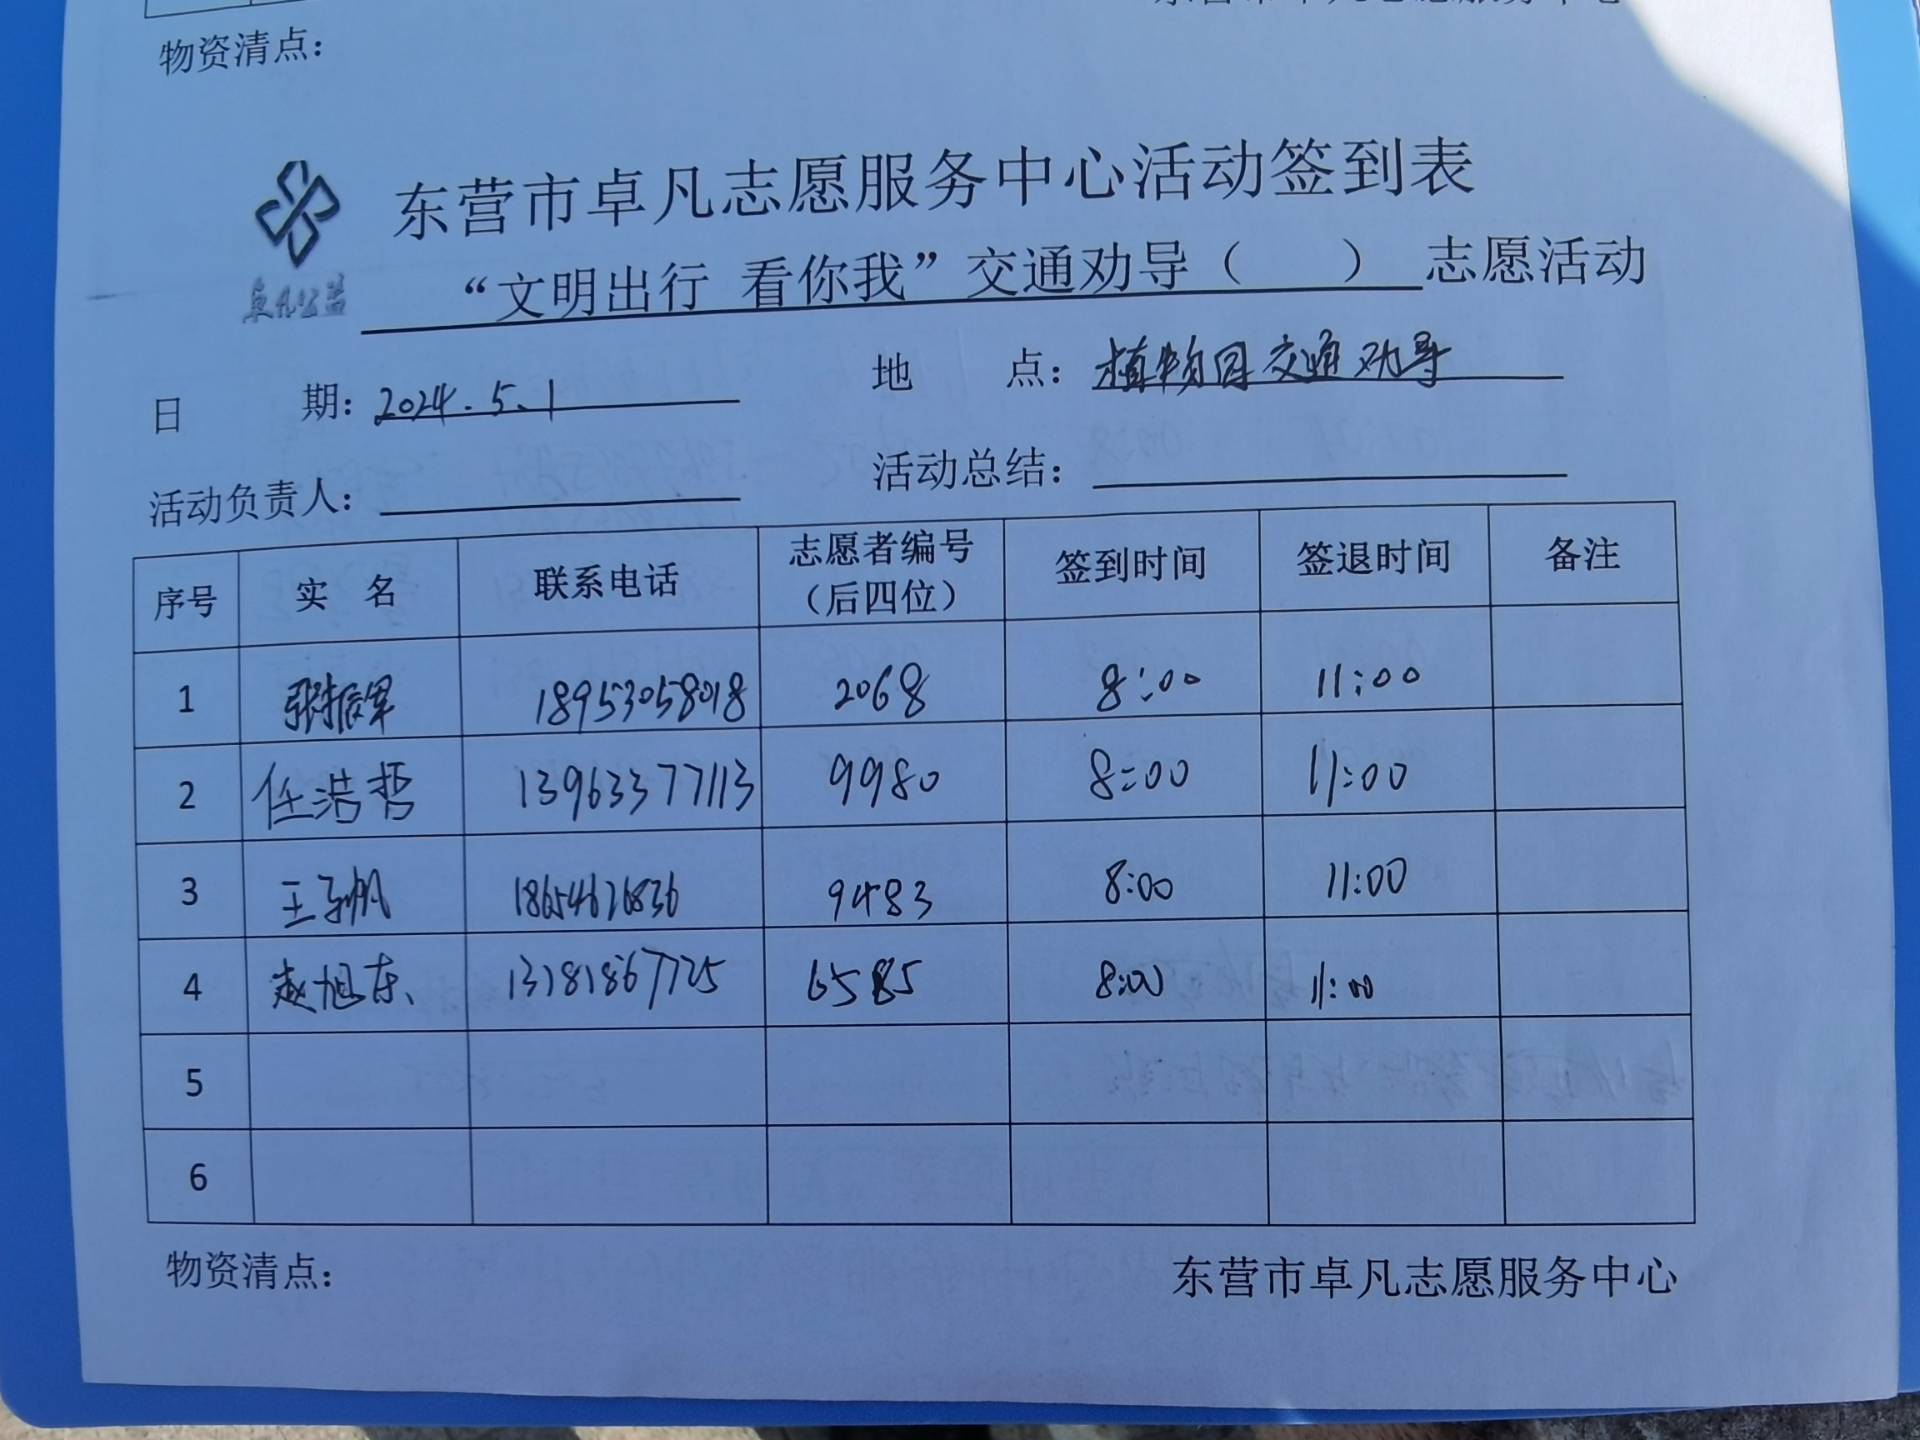 物资清点：
东营市卓凡志愿服务中心活动签到表
“文明出行 看你我”交通劝导（ ） 志愿活动
卓凡公益
日 期：2024.5.1 地 点：植物园交通劝导
活动负责人： 活动总结：
序号 实 名 联系电话 志愿者编号（后四位） 签到时间 签退时间 备注
1 张振军 18953058018 2068 8:00 11:00
2 任浩哲 13963377113 9980 8:00 11:00
3 王子帆 18654626836 9483 8:00 11:00
4 赵旭东 13181867725 6585 8:00 11:00
5
6
物资清点： 东营市卓凡志愿服务中心